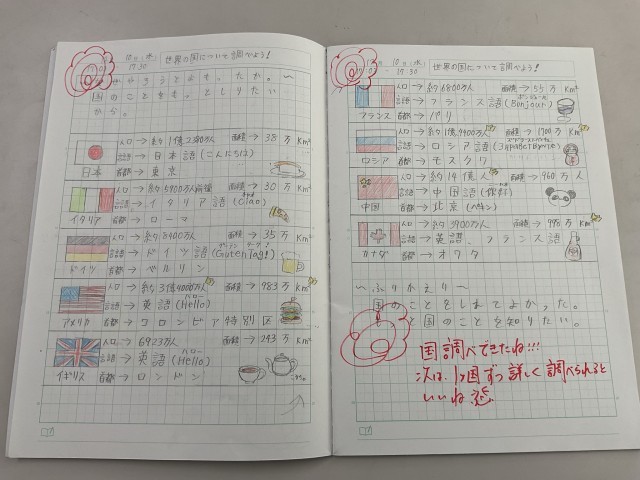 10日(木)
17:30
世界の国について調べよう!
やろうとよもったか。〜
国のことをもっとしりたい
から。
人口→約1億2380万人 面積→38万Km²
言語→日本語(こんにちは)
日本 首都→東京
人口→約5900万人前後 面積→30万Km²
言語→イタリア語(Ciao)
イタリア 首都→ローマ
人口→約8400万人 面積→35万Km²
言語→ドイツ語(Guten Tag!)
ドイツ 首都→ベルリン
人口→約3億4000万人 面積→983万Km²
ハロー
言語→英語(Hello)
アメリカ 首都→ワロンビア特別区
人口→6923万人 面積→243万Km²
ハロー
言語→英語(Hello)
イギリス 首都→ロンドン
10日(木)
17:30
世界の国について調べよう!
人口→約6800万人 面積→55万Km²
言語→フランス語(Bonjour)
フランス 首都→パリ
人口→約1億4400万人 面積→1700万Km²
言語→ロシア語
ロシア 首都→モスクワ
人口→約14億人 面積→960万人
言語→中国語(你好)
中国 首都→北京(ペキン)
人口→約3900万人 面積→998万Km²
言語→英語、フランス語
カナダ 首都→オタワ
〜ふりかえり〜
国のことをしれてよかった。
国のことを知りたい。
国調べできたね!!!
次は、1ヶ国ずつ詳しく調べられると
いいね